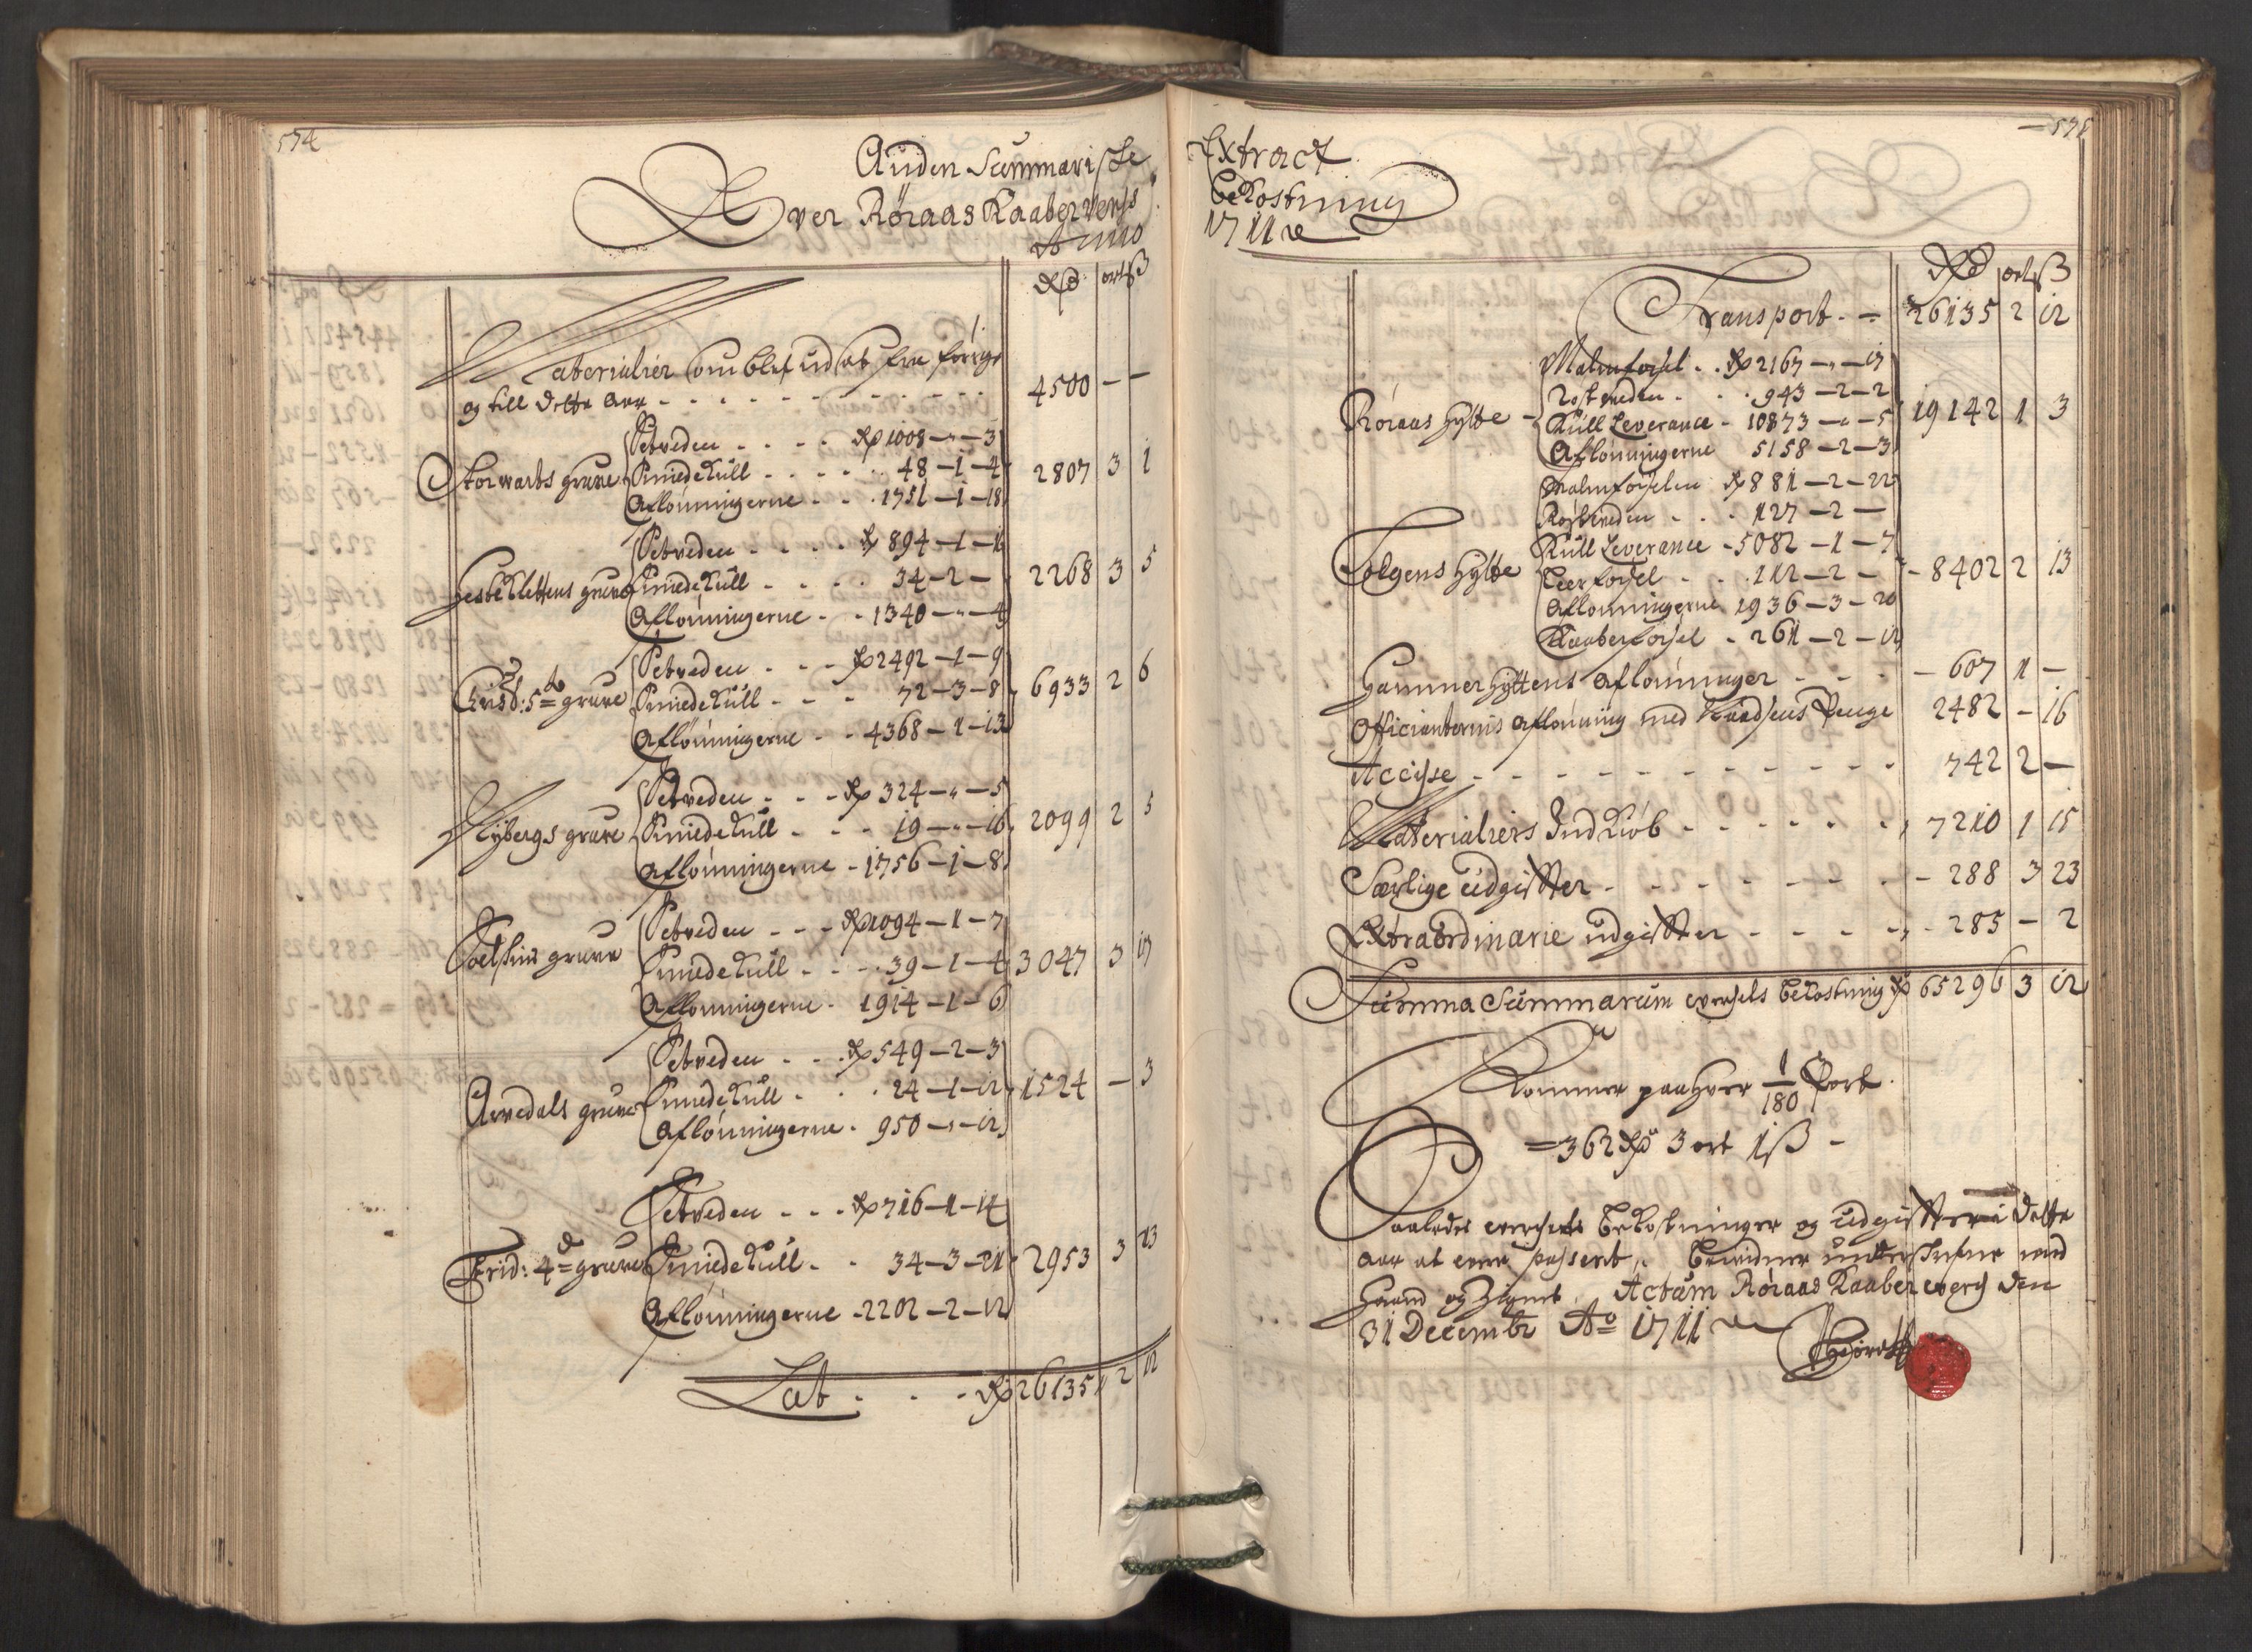 574
Anden Summariske
Over Røraas Kaaberverks
Anno
Rd ort ß
Materialier som blef ud at fra forrige
og till dette Aar - - - - 4500 — —
Storwarts grube
Setveden - - - Rd 1008 — „ — 3
Smiedekull - - - 48 — 1 — 4
Aflönningerne - - 1751 — 1 — 18
2807 3 1
Hestklettens grube
Setveden - - - Rd 894 — 1 — 1
Smiedekull - - - 34 — 2 —
Aflönningerne - - 1340 — „ — 4
2268 3 5
Christ: 5te grube
Setveden - - - Rd 2492 — 1 — 9
Smiedekull - - - 72 — 3 — 8
Aflönningerne - - 4368 — 1 — 13
6933 2 6
Nybergs grube
Setveden - - - Rd 324 — „ — 5
Smiedekull - - - 19 — „ — 16
Aflönningerne - 1756 — 1 — 8
2099 2 5
grube
Setveden - - - Rd 1094 — 1 — 7
Smiedekull - - - 39 — 1 — 4
Aflönningerne - 1914 — 1 — 6
3047 3 17
Arvedals grube
Setveden - - - Rd 549 — 2 — 3
Smiedekull - - - 24 — 1 — 12
Aflönningerne - 950 — „ — 12
1524 — 3
Frid: 4de grube
Setveden - - - Rd 716 — 1 — 14
Smiedekull - - 34 — 3 — 11
Aflönningerne - 2202 — 2 — 12
2953 3 13
Lat - - - Rd 26135 2 12
575
Extract
Bekostning
1711
Rd ort ß
Transport - - 26135 2 12
Røraas Hytte
Malmførsel - - Rd 2167 — „ — 17
Rostveden - - 943 — 2 — 2
Kull Leverance - 10873 — „ — 5
Aflönningerne 5158 — 2 — 3
19142 1 3
Tolgens Hytte
Malmførselen Rd 881 — 2 — 22
Rostveden - - - 127 — 2 —
Kull Leverance - 5082 — 1 — 7
Leerførsel - - 112 — 2 —
Aflönningerne 1936 — 3 — 20
Kaaberførsel - 261 — 2 — 12
8402 2 13
Hammer Hyttens Aflönninger - - - 607 1 —
Officianternis Aflönning med Penge 2482 — 16
Accisse - - - - - 742 2 —
Materialiers IndKiøb - - - - 7210 1 15
Særlige Udgiffter - - - - 288 3 23
Extraordinarie udgiffter - - - - 285 — 2
Summa Summarum Bekostning Rd 65296 3 12
Kommer paa hver 1/180 Part
= 362 Rd 3 ort 1 ß -
Saaledes Bekostninger og Udgiffter i dette
Aar at være passeret, Bevidner underskrefne med
Haand og Zignet. Actum Røraas Kaaberverk den
31 Decembr Ao 1711